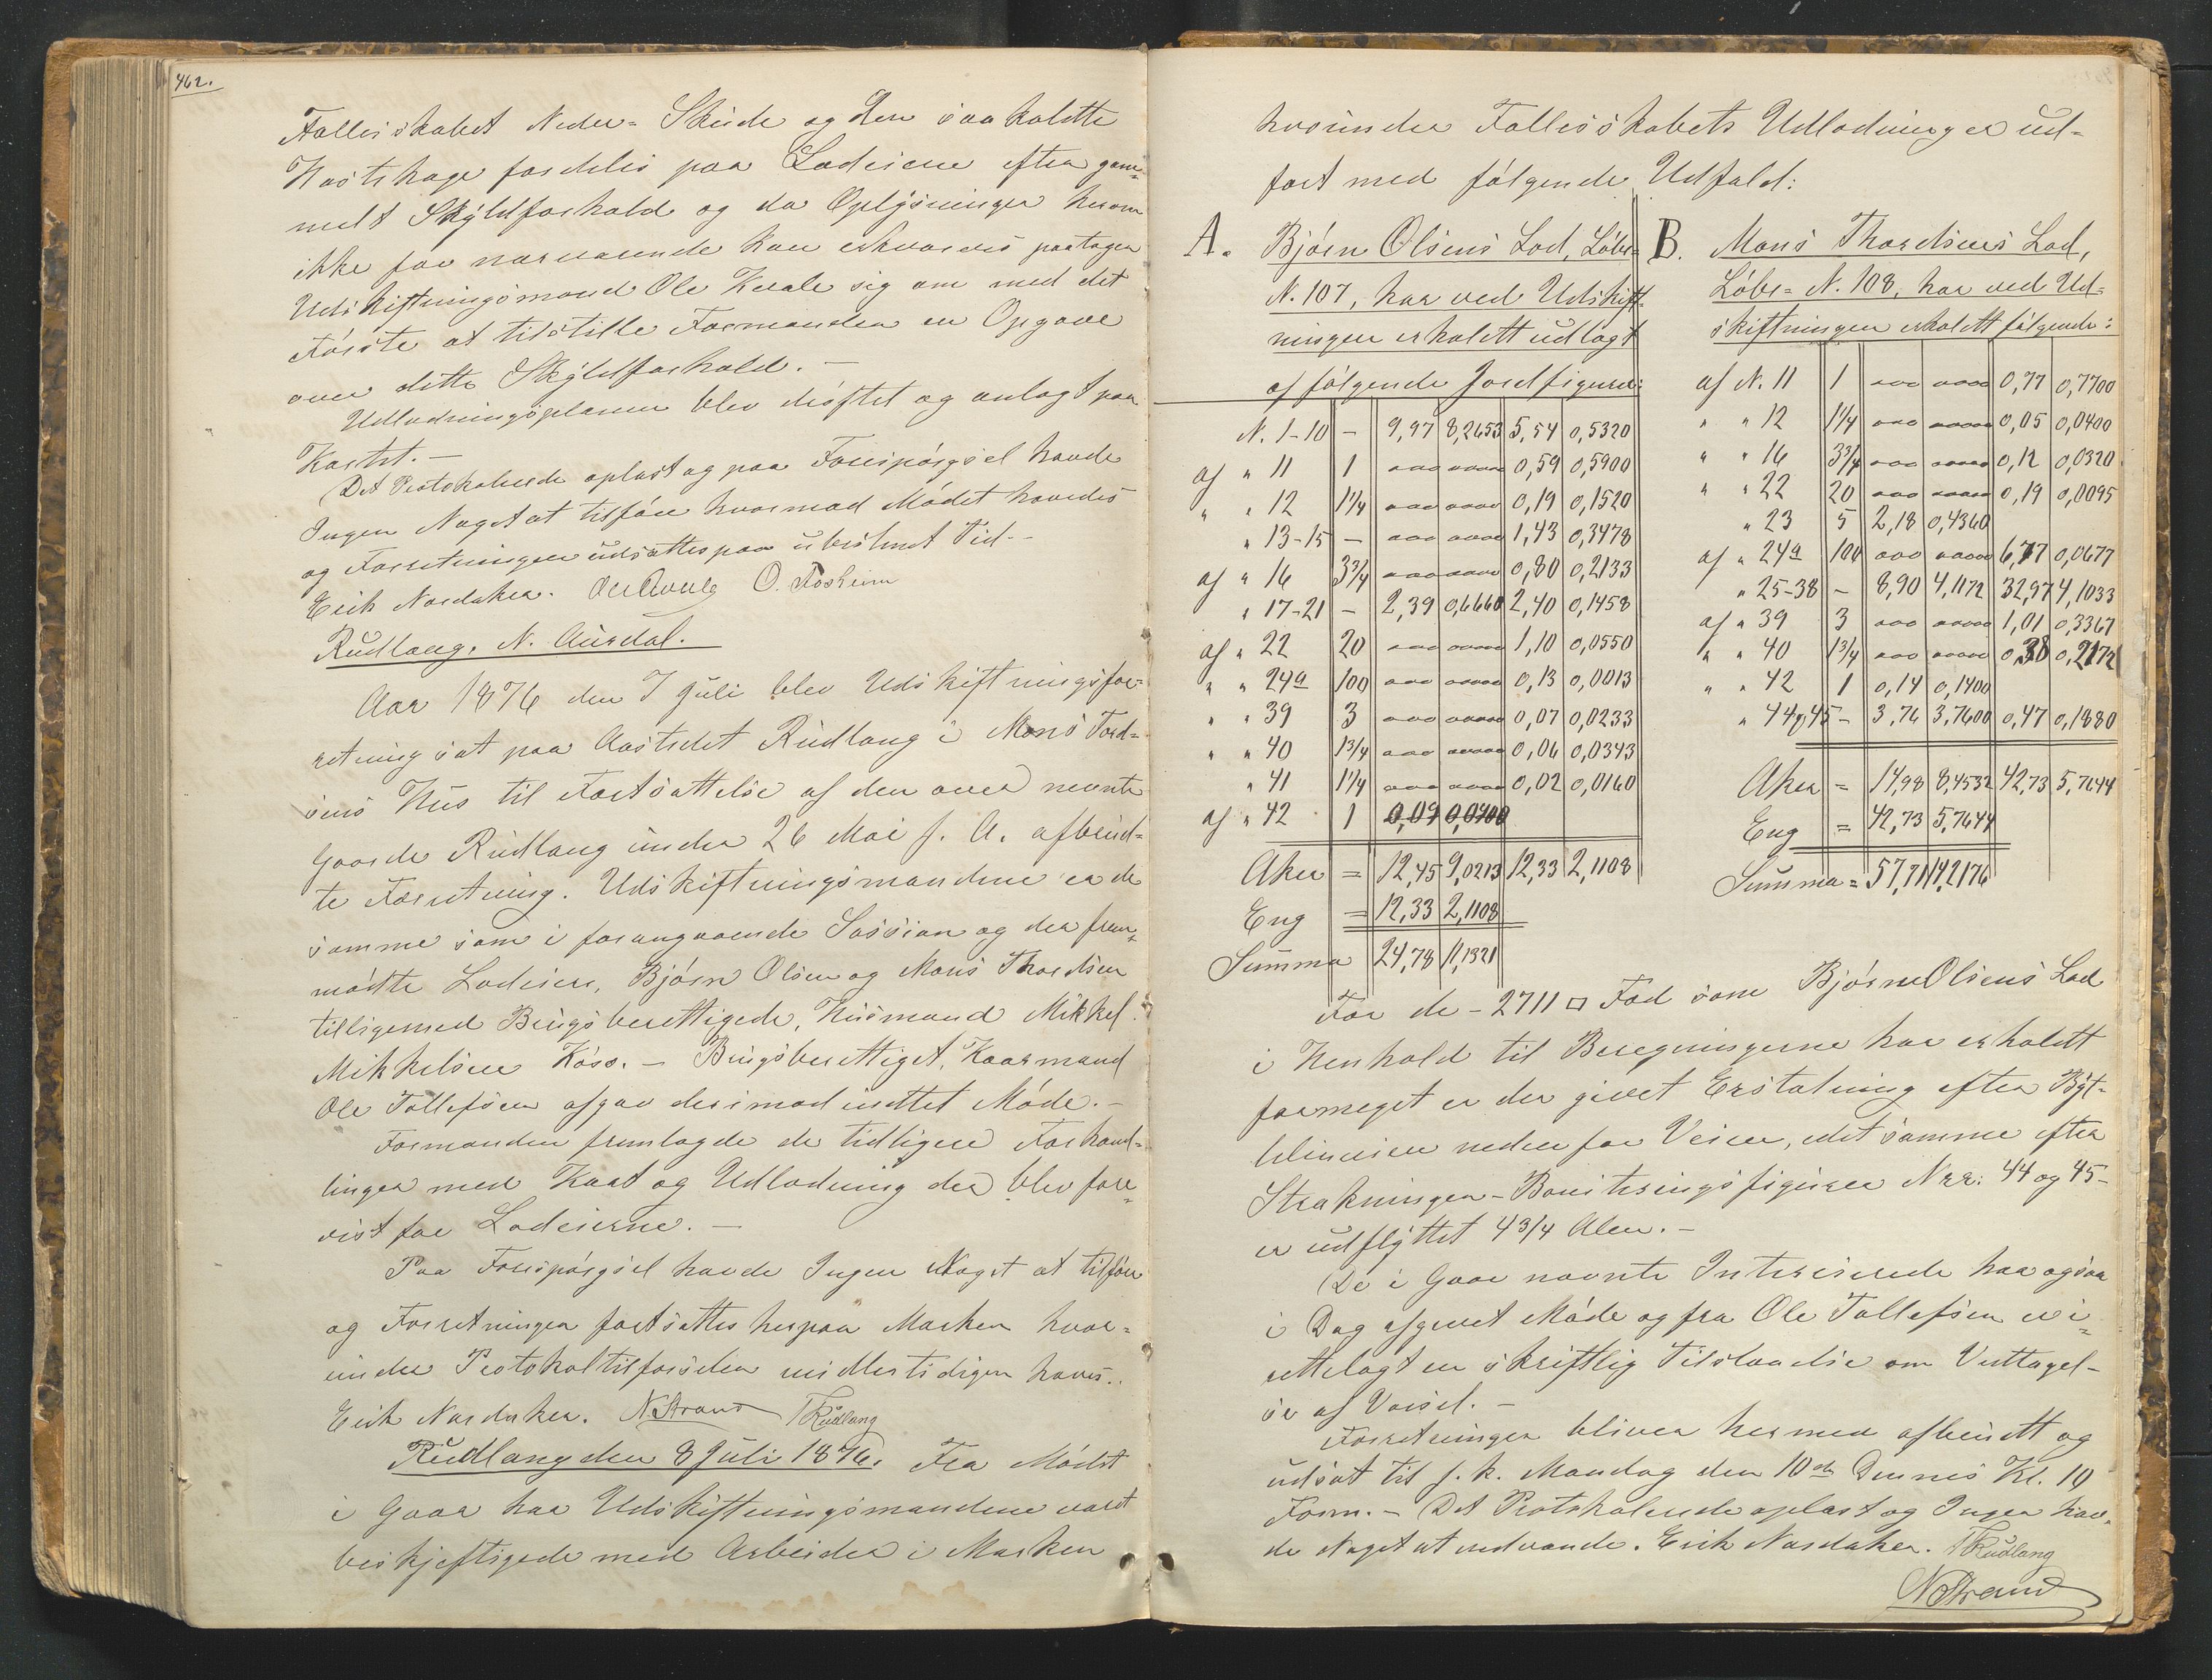 462.
Fællesskabet Neder-Skude og den saa kaldte
Hæstehage fordeles paa Lodeierne efter gam-
melt Skyldforhold og da Oplysninger herom
ikke for nærværende kan erhverves paatager
Udskiftningsmand Ole Kvale sig om med det
Første at tilstille Formanden en Opgave
over dette Skyldforhold. —
Udlodningsplanen blev drøftet og anlagt paa
Kartet. —
Det Protokolerede oplæst og paa Forespørgsel havde
Ingen Noget at tilføre hvormed Mødet hævedes
og Forretningen udsættes paa ubestemt Tid. -
Erik Nordaker. Ole Qvale O. Fosheim
Rudlang, N. Aurdal.
Aar 1876 den 7 Juli blev Udskiftningsfor-
retning sat paa Aastedet Rudlang i Mons Tord-
sens Hus til Fortsættelse af den over nevnte
Gaarde Rudlang under 26 Mai f. A. afbrud-
te Forretning. Udskiftningsmandene er de
samme som i foregaaende Session og der frem-
mødte Lodeiere, Bjørn Olsen og Mons Thordsen
tilligemed Brugsberettigede, Husmand Mikkel
Mikkelsen Koss. — Brugsberettiget, Kaarmand
Ole Tollefsen afgav derimod intet Møde. —
Formanden fremlagde de tidligere Forhand-
linger med Kart og Udlodning der blev fore-
vist for Lodeierne. —
Paa Forespørgsel havde Ingen Noget at tilføre
og Forretningen fortsættes herpaa Marken hvor-
under Protokoltilførselen midlertidigen hæves..
Erik Nordaker. N Strand T Rudlang
Rudlang den 8 Juli 1876. Fra Mødet
i Gaar har Udskiftningsmandene været
beskjeftigede med Arbeider i Marken
hvorunder Fællesskabets Udlodninger ud-
ført med følgende Udfald:
A. Bjørn Olsens Lod, Løbe-
N. 107, har ved Udskift-
ningen erholdt udlagt
af følgende Jordfigurer:
N. 1-10 — 9,97 8,2653 5,54 0,5320
af " 11 1 ooo oooo 0,59 0,5900
" " 12 1 1/4 ooo oooo 0,19 0,1520
" 13-15 — ooo oooo 1,43 0,3478
af " 16 3 3/4 ooo oooo 0,80 0,2133
" 17-21 — 2,39 0,6660 2,40 0,1458
af " 22 20 ooo oooo 1,10 0,0550
" " 24a 100 ooo oooo 0,13 0,0013
" " 39 3 ooo oooo 0,07 0,0233
" " 40 1 3/4 ooo oooo 0,06 0,0343
" 41 1 1/4 ooo oooo 0,02 0,0160
af " 42 1 0,09 0,0900
Aker = 12,45 9,0213 12,33 2,1108
Eng = 12,33 2,1108
Summa 24,78 11,1321
B. Mons Thordsens Lod,
Løbe-N. 108, har ved Ud-
skiftningen erholdt følgende:
af N. 11 1 ooo oooo 0,77 0,7700
" " 12 1 1/4 ooo oooo 0,05 0,0400
" " 16 3 3/4 ooo oooo 0,12 0,0320
" " 22 20 ooo oooo 0,19 0,0095
" 23 5 2,18 0,4360
af " 24a 100 ooo oooo 6,77 0,0677
" 25-38 — 8,90 4,1172 32,97 4,1033
af " 39 3 ooo oooo 1,01 0,3367
" " 40 1 3/4 ooo oooo 0,38 0,2172
" " 42 1 0,14 0,1400
" 44 og 45 — 3,76 3,7600 0,47 0,1880
Aker = 14,98 8,4532 42,73 5,7644
Eng = 42,73 5,7644
Summa = 57,71 14,2176
For de - 2711 □ Fod som Bjørn Olsens Lod
i Henhold til Beregningerne har erholdt
formeget er der givet Erstatning efter Byt-
telinien nedenfor Veien, idet samme efter
Strækningen - Boniteringsfigurer Nrr. 44 og 45 -
er udflyttet 4 3/4 Alen. —
De i Gaar nævnte Interesserede har ogsaa
i Dag afgivet Møde og fra Ole Tollefsen er i-
rettelagt en skriftlig Tilstaaelse om Vedtagel-
se af Varsel. —
Forretningen bliver hermed afbrudt og
udsat til f. k. Mandag den 10de Dennes Kl. 10
Form. — Det Protokolerede oplæst og Ingen hav-
de Noget at indvende. Erik Nordaker. T Rudlang
N Strand